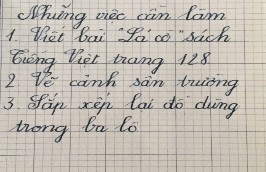 Những việc cần làm
1. Viết bài "Lá cờ" sách
Tiếng Việt trang 128
2. Vẽ cảnh sân trường
3. Sắp xếp lại đồ dùng
trong ba lô